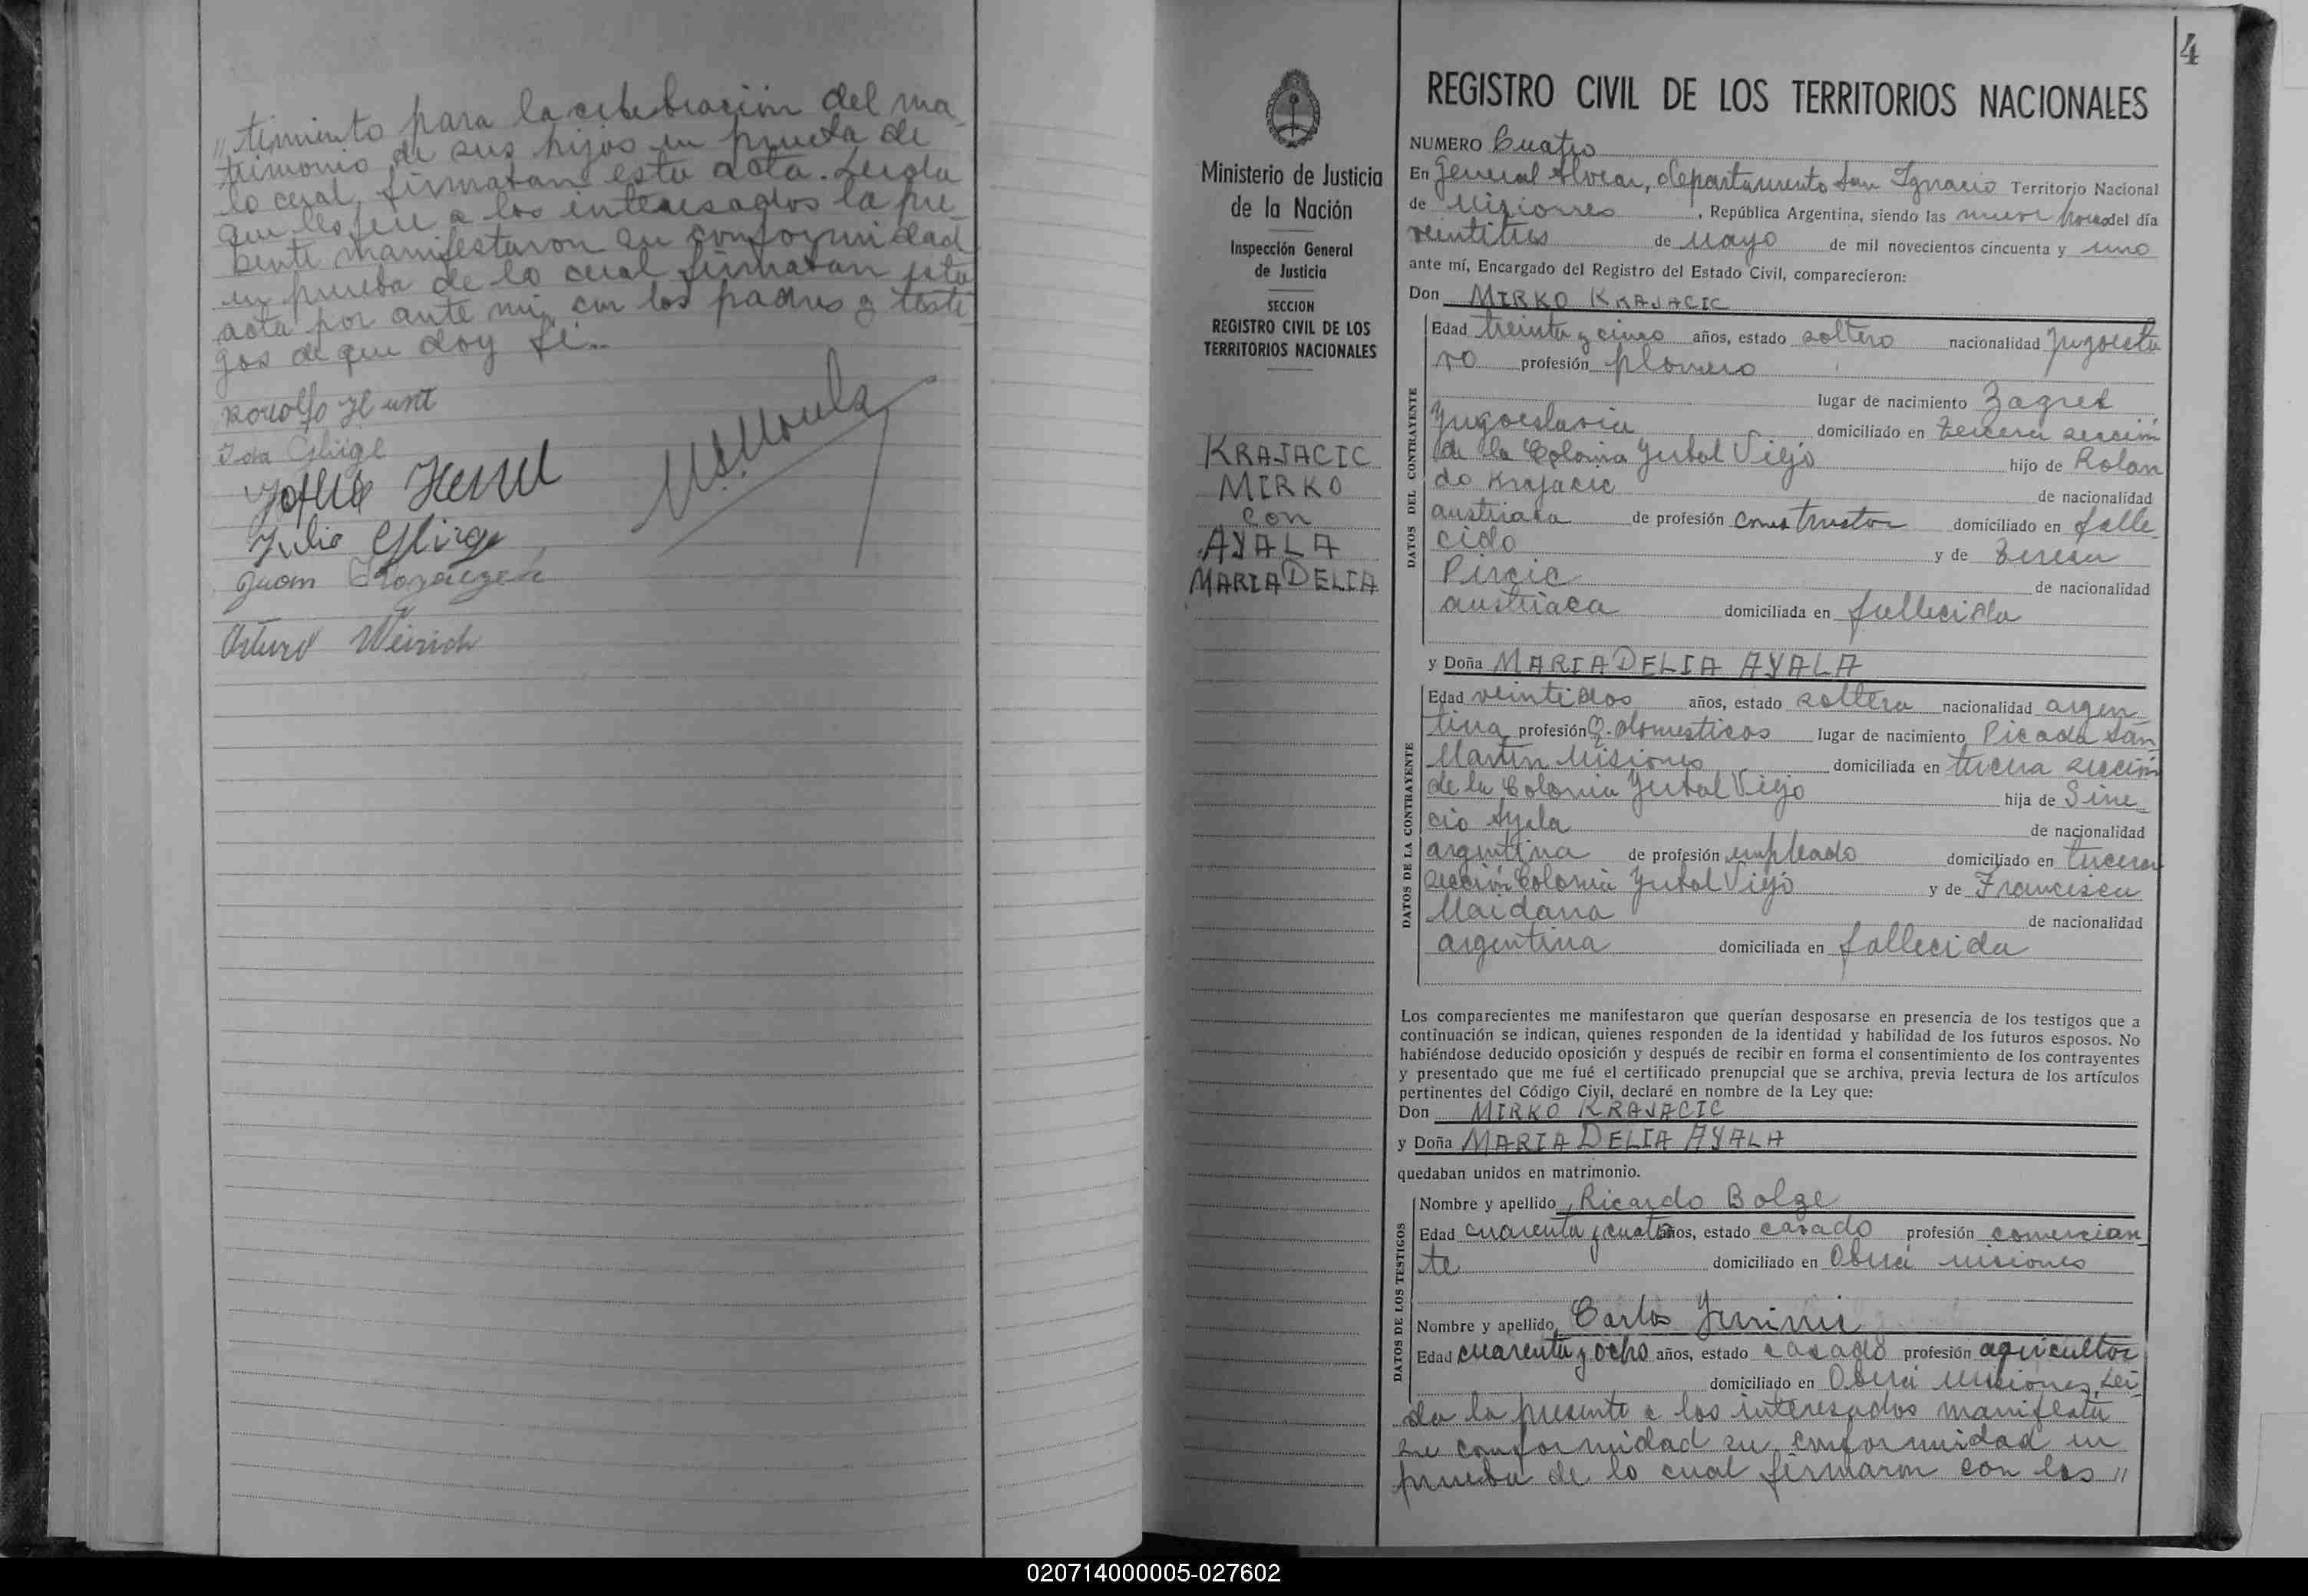 " timiento para la celebración del ma
trimonio de sus hijos en prueba de
lo cual, firmaran esta acta. Leida
que les fue a los interesados la pre
sente manifestaron su conformidad
en prueba de lo cual firmaran esta
acta por ante mi, con los padres y testi
gos de que doy fé..
Rodolfo Hunt
Ida Glirge
Julio Glirge
Juan
Arturo Weirich
4
REGISTRO CIVIL DE LOS TERRITORIOS NACIONALES
Ministerio de Justicia
de la Nación
Inspección General
de Justicia
SECCION
REGISTRO CIVIL DE LOS
TERRITORIOS NACIONALES
KRAJACIC
MIRKO
con
AYALA
MARIA DELIA
NUMERO Cuatro
En General Alvear, departamento San Ignacio Territorio Nacional
de Misiones, República Argentina, siendo las nueve horas del día
veintitres de Mayo de mil novecientos cincuenta y uno
ante mí, Encargado del Registro del Estado Civil, comparecieron:
Don MIRKO KRAJACIC
DATOS DEL CONTRAYENTE
Edad treinta y cinco años, estado soltero nacionalidad Jugoesla
vo profesión plomero
lugar de nacimiento Zagreb
Yugoeslavia domiciliado en tercera sección
de la Colonia Yerbal Viejo hijo de Rolan
do Krajacic de nacionalidad
austriaca de profesión constructor domiciliado en falle
cido y de Teresa
Pircic de nacionalidad
austriaca domiciliada en fallecida
y Doña MARIA DELIA AYALA
DATOS DE LA CONTRAYENTE
Edad veintidos años, estado soltera nacionalidad argen
tina profesión Q. domesticos lugar de nacimiento Picada San
Martín Misiones domiciliada en tercera sección
de la Colonia Yerbal Viejo hija de Sine
cio Ayala de nacionalidad
argentina de profesión empleado domiciliado en tercera
sección Colonia Yerbal Viejo y de Francisca
Maidana de nacionalidad
argentina domiciliada en fallecida
Los comparecientes me manifestaron que querían desposarse en presencia de los testigos que a
continuación se indican, quienes responden de la identidad y habilidad de los futuros esposos. No
habiéndose deducido oposición y después de recibir en forma el consentimiento de los contrayentes
y presentado que me fué el certificado prenupcial que se archiva, previa lectura de los artículos
pertinentes del Código Civil, declaré en nombre de la Ley que:
Don MIRKO KRAJACIC
y Doña MARIA DELIA AYALA
quedaban unidos en matrimonio.
DATOS DE LOS TESTIGOS
Nombre y apellido Ricardo Bolze
Edad cuarenta y cuatro años, estado casado profesión comercian
te domiciliado en Oberá misiones
Nombre y apellido Carlos
Edad cuarenta y ocho años, estado casado profesión agricultor
domiciliado en Oberá misiones, Lei
da la presente a los interesados manifesta
su conformidad su conformidad en
prueba de lo cual firmaron con los "
020714000005-027602